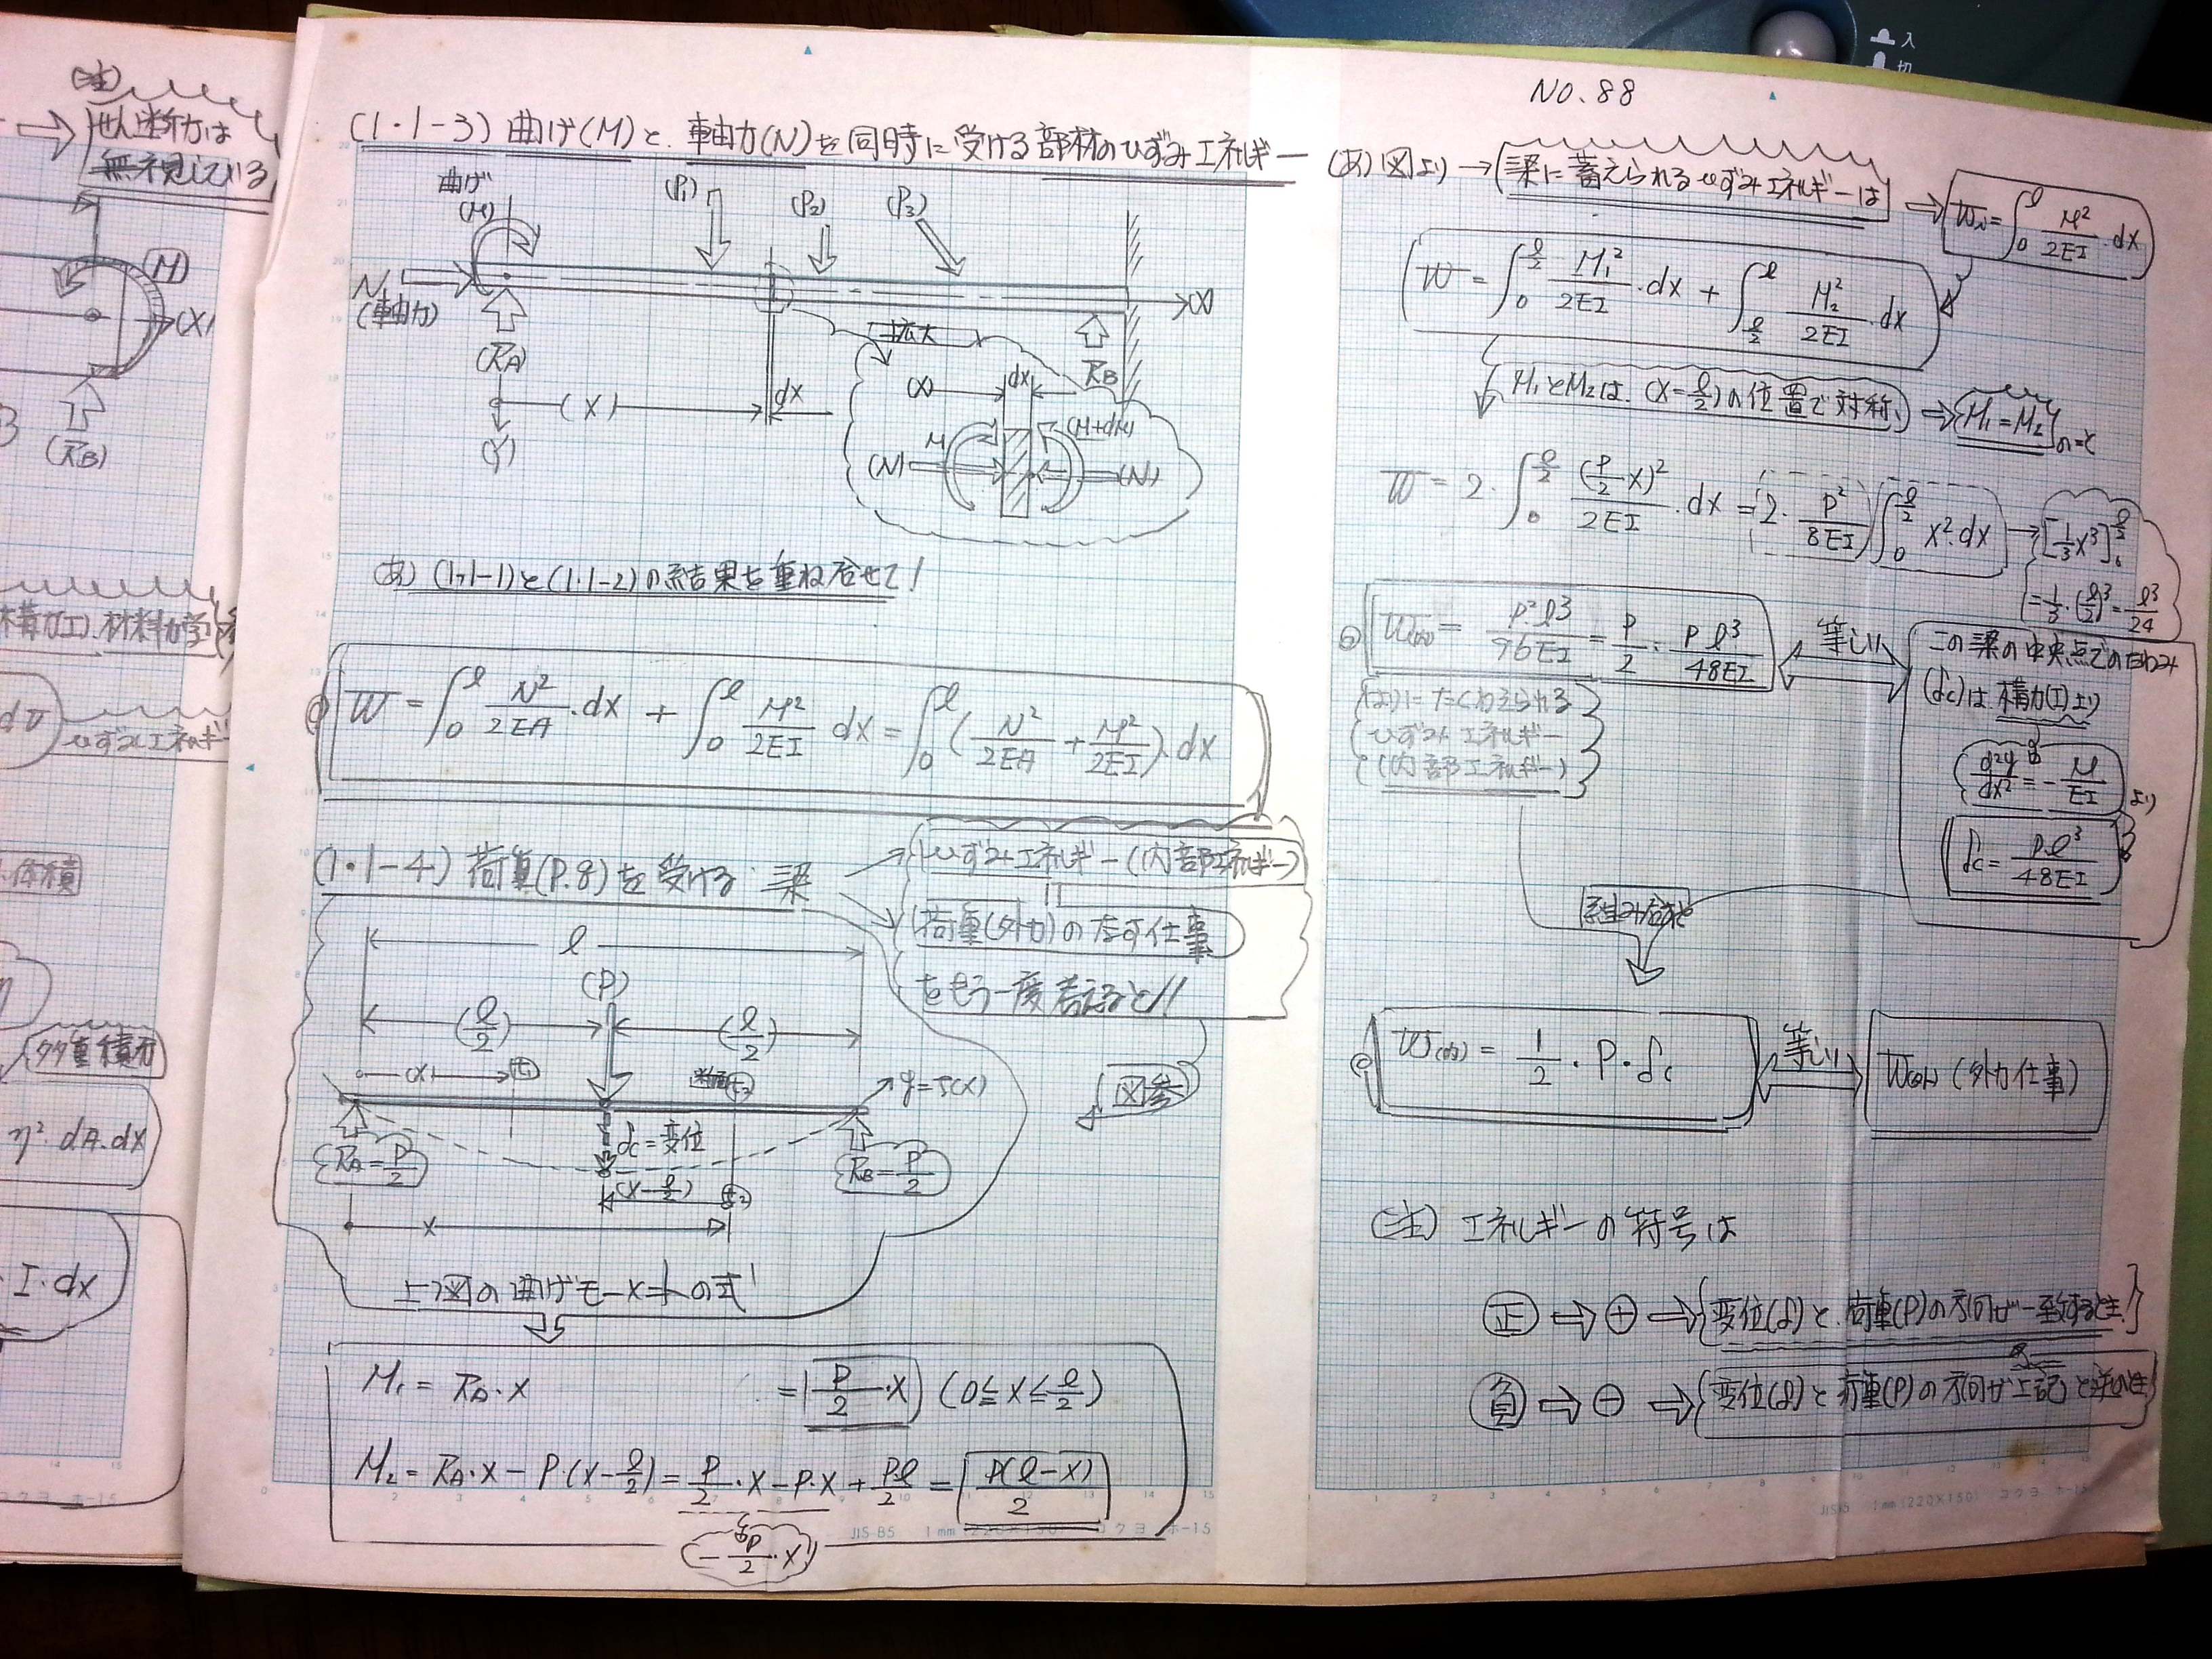 入
切
NO.88
(注)
せん断力は
無視している
(M)
(X)
(RB)
構力(I).材料力学
ひずみエネルギー
体積
多重積分
η²・dA・dx
I・dx
(1・1-3) 曲げ(M)と、軸力(N)を同時に受ける部材のひずみエネルギー
曲げ
(M)
(P₁)
(P₂)
(P₃)
N
(軸力)
(X)
(RA)
拡大
RB
(X)
dx
(Y)
(X)
dx
M
(M+dM)
(N)
(N)
(あ) (1・1-1)と(1・1-2)の結果を重ね合せて!
W = ∫₀^ℓ N²/2EA・dx + ∫₀^ℓ M²/2EI dx = ∫₀^ℓ (N²/2EA + M²/2EI)・dx
(1・1-4) 荷重(P.8)を受ける 梁
ひずみエネルギー(内部エネルギー)
荷重(外力)のなす仕事
をもう一度考えると//
図参
ℓ
(P)
(ℓ/2)
(ℓ/2)
(X)
断面
y=f(x)
δc=変位
RA=P/2
RB=P/2
(X-ℓ/2)
X
上図の曲げモーメントの式
M₁ = RA・X = P/2・X (0≦X≦ℓ/2)
M₂ = RA・X - P(X-ℓ/2) = P/2・X - P・X + Pℓ/2 = P(ℓ-X)/2
-P/2・X
JIS B5 1mm(220×150) コクヨ ホ-15
(あ)図より → 梁に蓄えられるひずみエネルギーは ⇒ Wi = ∫₀^ℓ M²/2EI・dx
W = ∫₀^(ℓ/2) M₁²/2EI・dx + ∫_(ℓ/2)^ℓ M₂²/2EI・dx
M₁とM₂は、(X=ℓ/2)の位置で対称、 ⇒ M₁=M₂のとき
W = 2・∫₀^(ℓ/2) (P/2 X)²/2EI・dx = 2・P²/8EI ∫₀^(ℓ/2) X²・dx → [1/3 X³]₀^(ℓ/2)
= 1/3・(ℓ/2)³ = ℓ³/24
W(内) = P²ℓ³/96EI = P/2・Pℓ³/48EI
等しい
この梁の中央点でのたわみ
(δc)は 構力(I)より
(はり)にたくわえられる
ひずみエネルギー
(内部エネルギー)
d²y/dx² = -M/EI より
δc = P・ℓ³/48EI
組み合わせ
W(内) = 1/2・P・δc
等しい
W(外) (外力仕事)
(注) エネルギーの符号は
正 ⇒ ⊕ ⇒ 変位(δ)と、荷重(P)の方向が一致するとき
負 ⇒ ⊖ ⇒ 変位(δ)と荷重(P)の方向が上記と逆のとき
JIS B5 1mm(220×150) コクヨ ホ-15